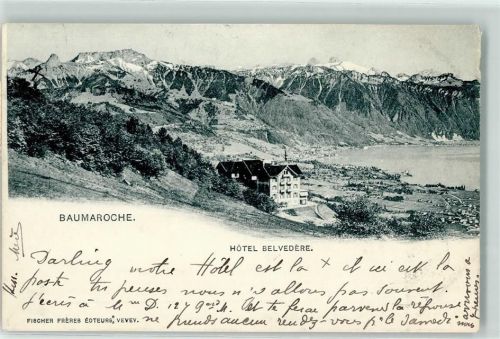 BAUMAROCHE.
HÔTEL BELVEDÈRE.
Darling notre Hôtel est la × et ici est la
poste tu penses nous n'y allons pas souvent.
J'écris à Mme D. 127 9me St. Et te ferai parvenir la réponse
ne prends aucun rendez-vous pr le Samedi
nous
arrivons à
FISCHER FRÈRES ÉDTEURS, VEVEY.